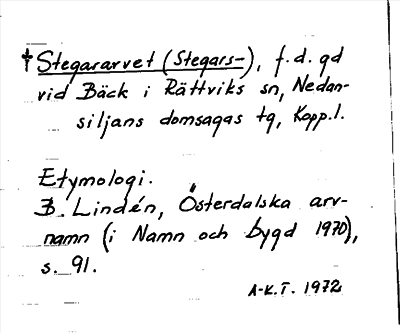 †Stegararvet (Stegars-), f.d. gd
vid Bäck i Rättviks sn, Nedan-
siljans domsagas tg, Kopp.l.
Etymologi.
B. Lindén, Österdalska arv-
namn (i Namn och bygd 1970),
s. 91.
A-K.T. 1972